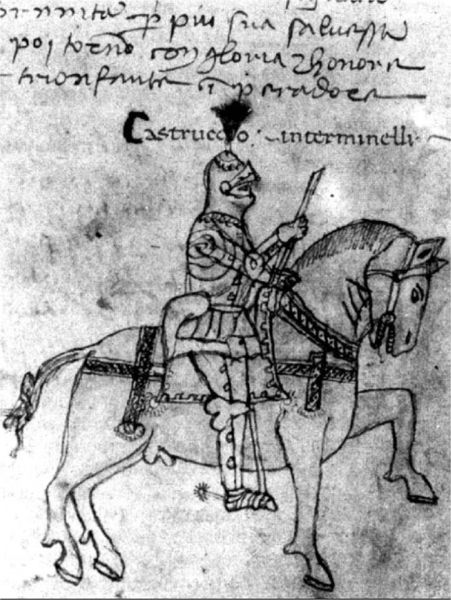 p piu sua salvessa
poi torno con gloria & honore
trionfante imperadore
Castruccio interminelli